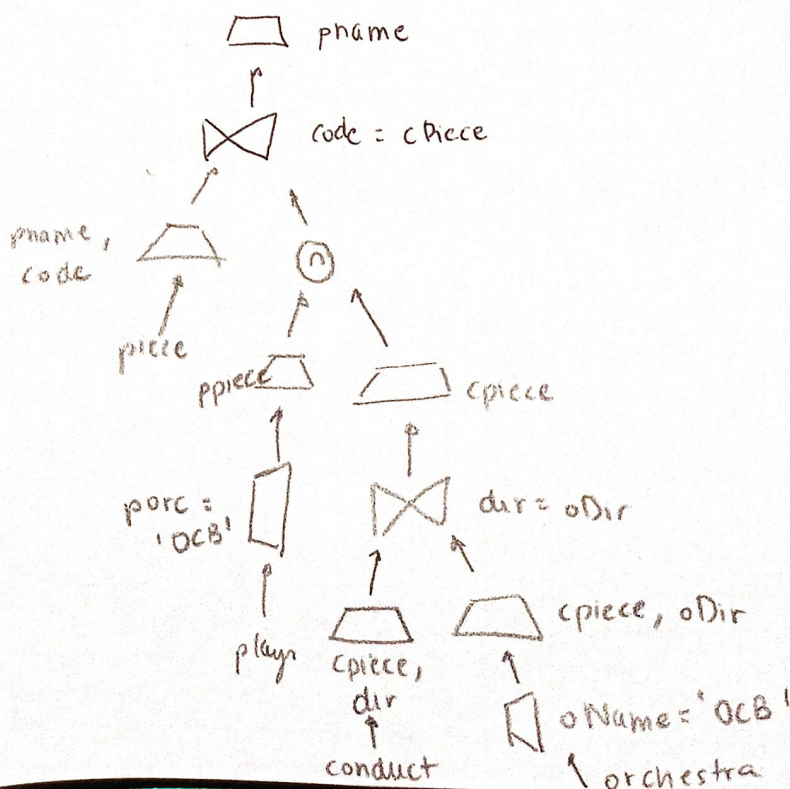 pname
code = cPiece
pname,
code
piece
ppiece
cpiece
porc =
'OCB'
dir = oDir
plays
cpiece,
dir
conduct
cpiece, oDir
oName = 'OCB'
orchestra